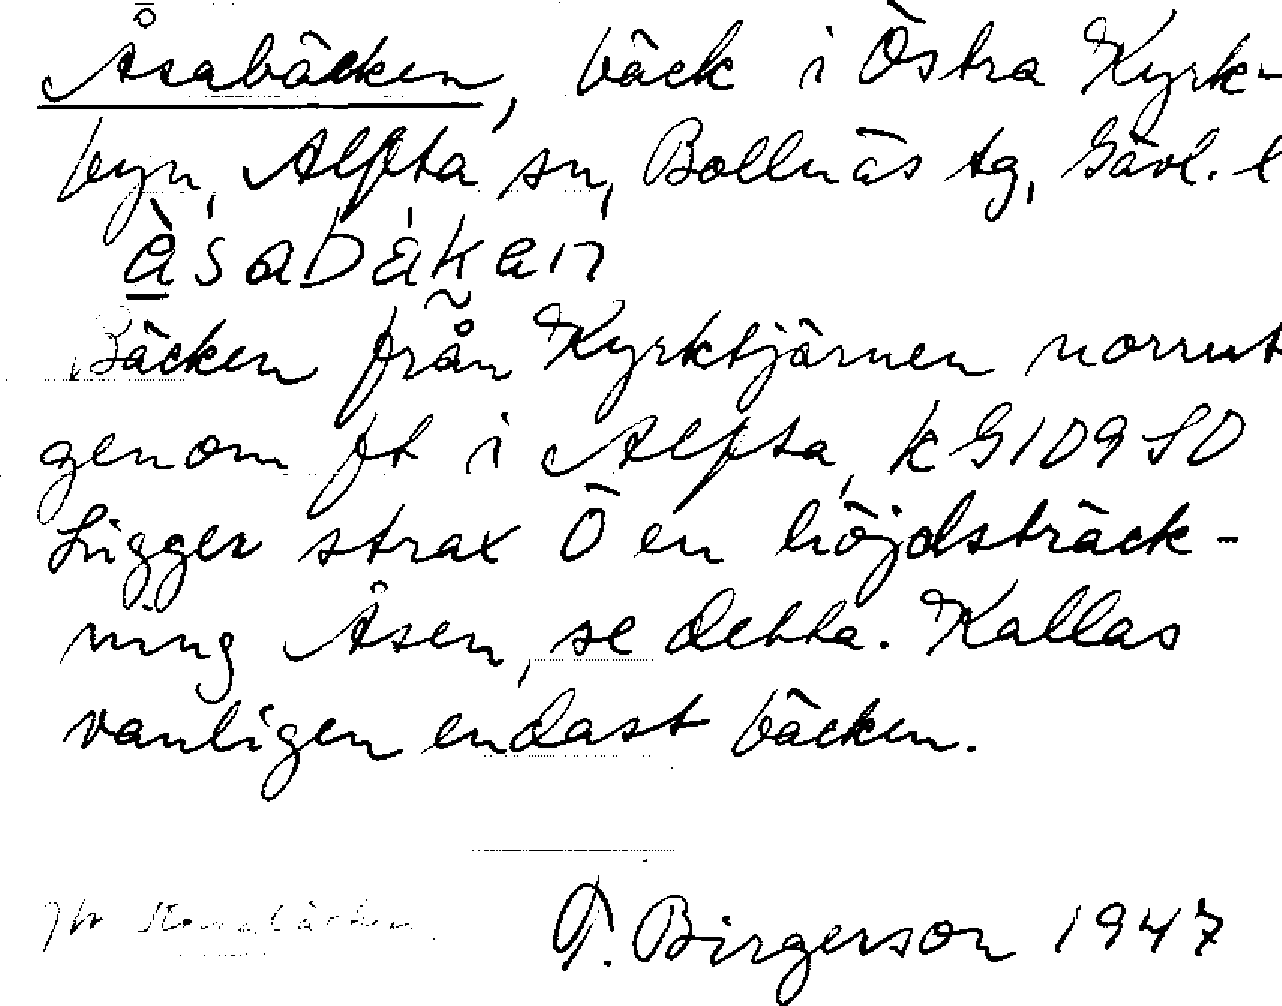 Åsabäcken, bäck i Östra Kyrk-
byn, Alfta sn, Bollnäs tg, Gävl. l
åsabäkan
Bäcken från Kyrktjärnen norrut
genom ft i Alfta, k G109 SO
Ligger strax Ö en höjdsträck-
ning Åsen, se detta. Kallas
vanligen endast bäcken.
T. Birgerson 1947
Jfr